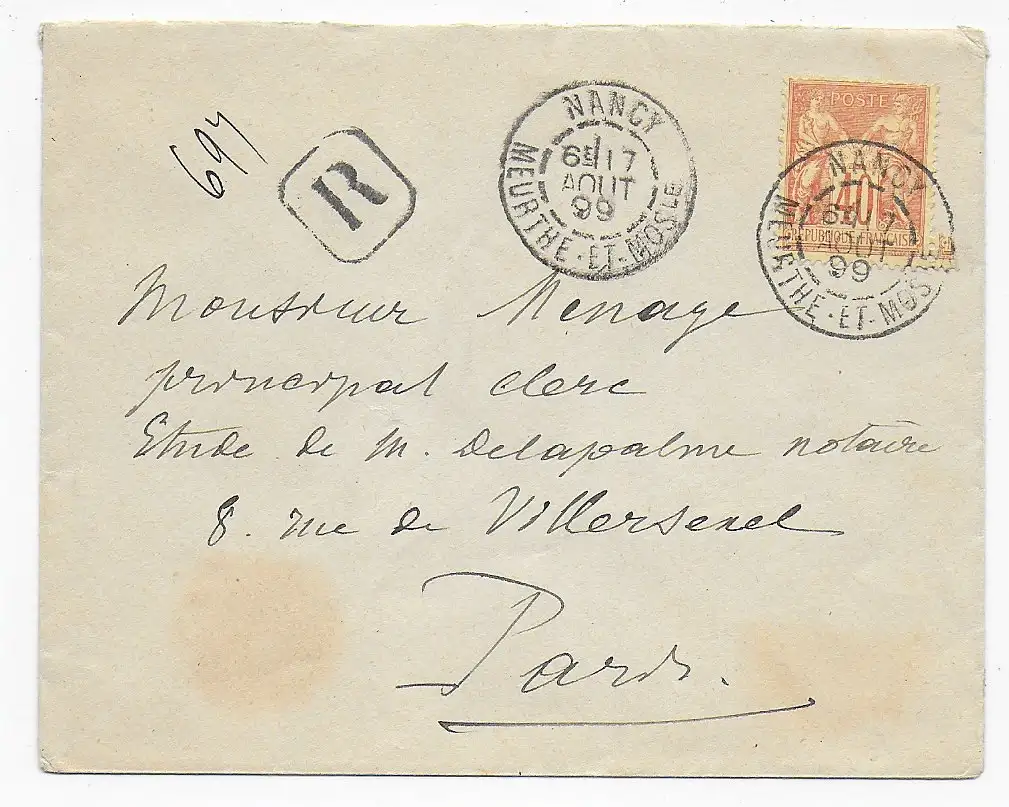 694
R
NANCY
6E 17
AOUT
99
MEURTHE-ET-MOSLE
POSTE
40
REPUBLIQUE FRANCAISE
NANCY
6E 17
AOUT
99
MEURTHE-ET-MOSLE
Monsieur Menage
principal clerc
Etude de M. Delapalme notaire
8. rue de Villersexel
Paris.